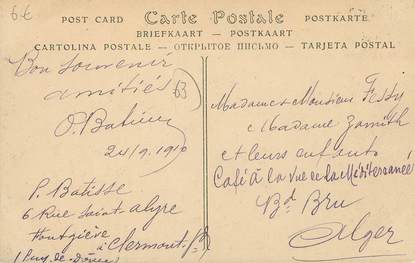 6€
POST CARD Carte Postale POSTKARTE
BRIEFKAART — POSTKAART
CARTOLINA POSTALE — ОТКРЫТОЕ ПИСЬМО — TARJETA POSTAL
Bon Souvenir
amitiés
63
24/9.1910
P. Batisse
6 Rue Saint-alyre
à Clermont-
(Puy-de-Dôme)
Madame et Monsieur
Madame
et leurs enfants
Café à la vue de la Méditerranée
Bd Bru
Alger